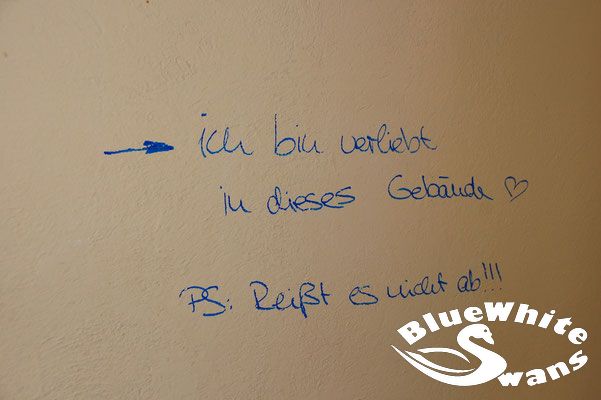 ich bin verliebt
in dieses Gebäude ♡
PS: Reißt es nicht ab!!!
BlueWhite
Swans